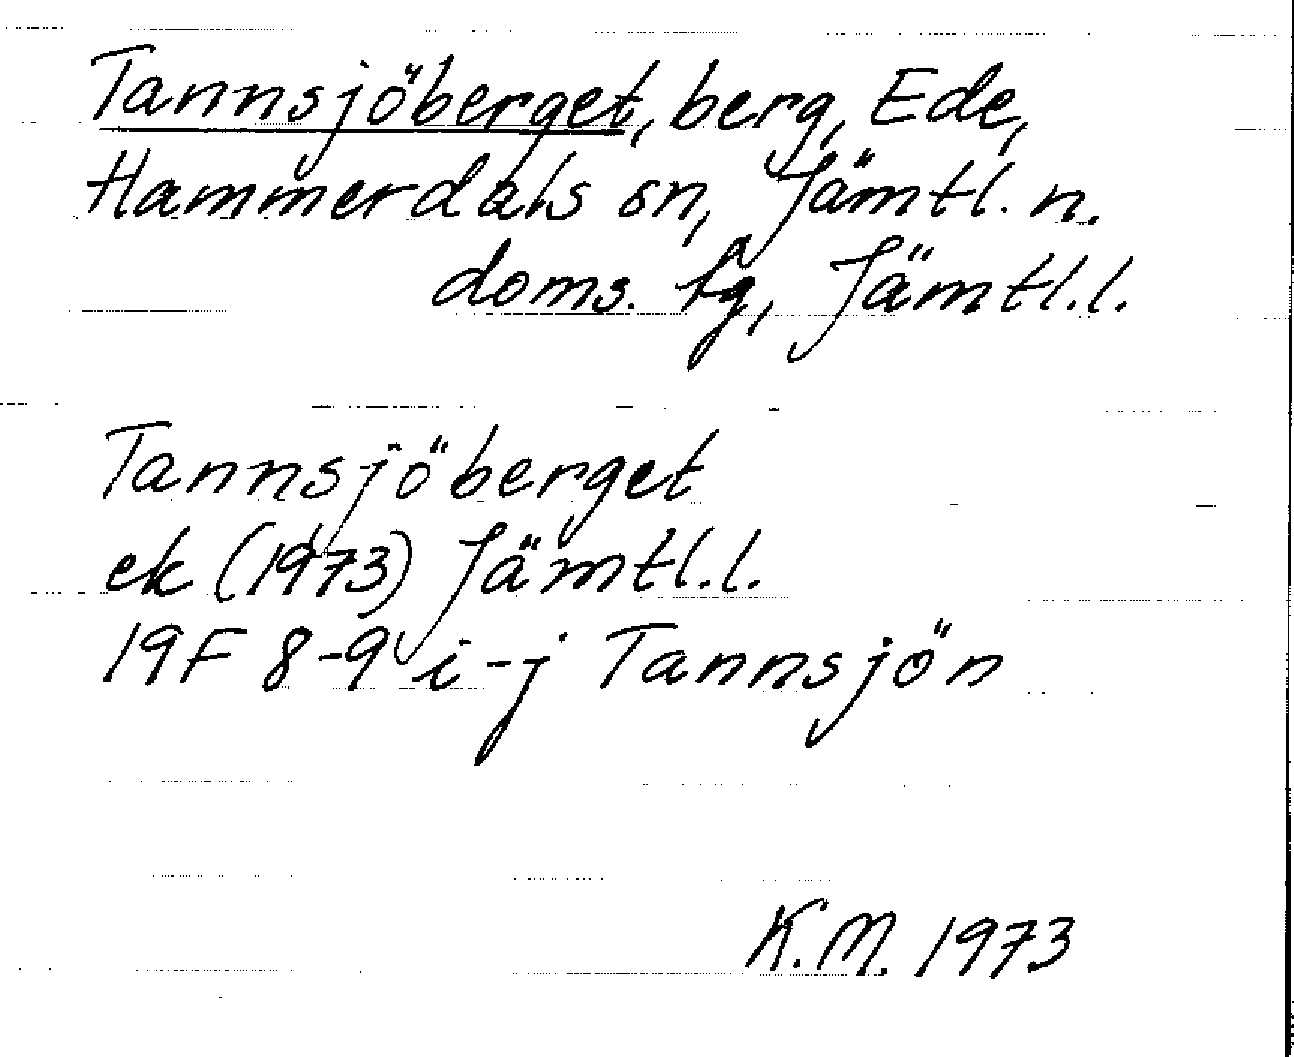 Tannsjöberget, berg, Ede,
Hammerdals sn, Jämtl. n.
doms. tg, Jämtl.l.
Tannsjöberget
ek (1973) Jämtl.l.
19F 8-9 i-j Tannsjön
K.M. 1973